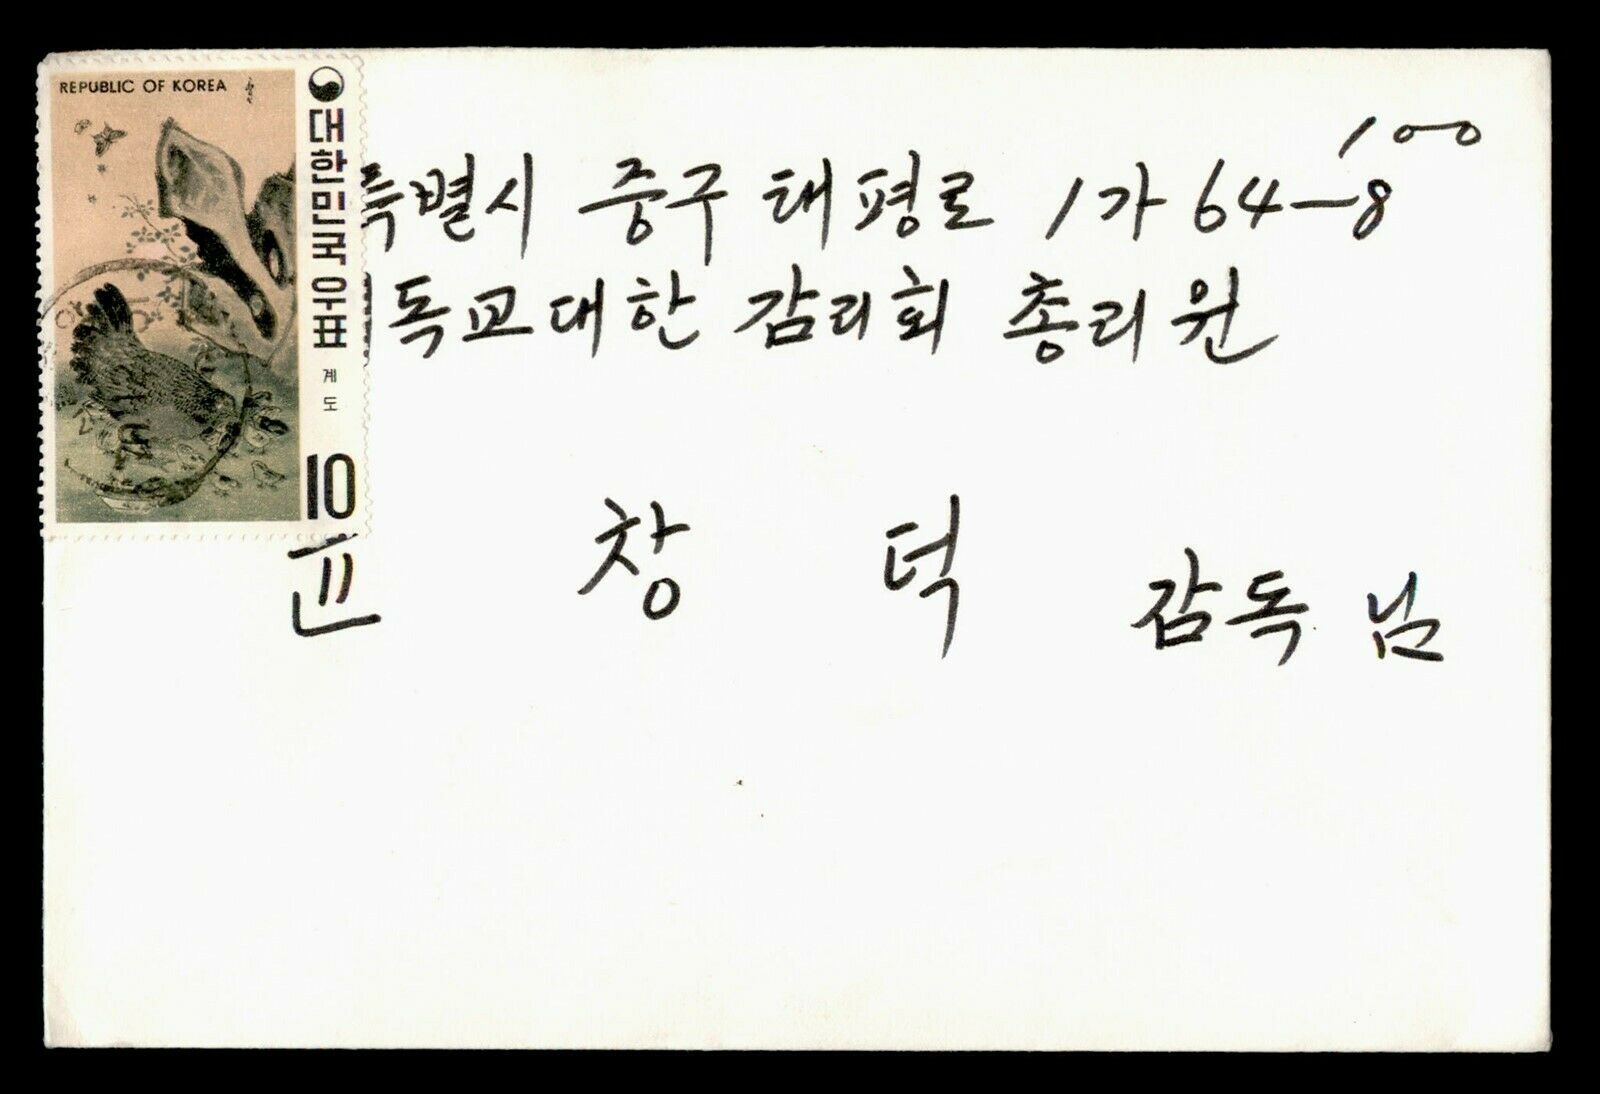 REPUBLIC OF KOREA
대한민국 우표
계도
10
100
특별시 중구 태평로 1가 64-8
독교대한 감리회 총리원
윤 창 덕 감독님